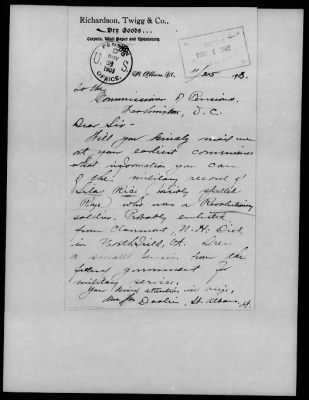 Richardson, Twigg & Co.,
Dry Goods...
Carpets, Wall Paper and Upholstery.
U.S.
OFFICE
St. Albans, Vt. 11/25 1903.
To the
Commissioner of Pensions,
Washington, D. C.
Dear Sir -
Will you kindly mail me
at your earliest convenience
what information you can
of the military record of
Rice, spelled
who was a Revolutionary
soldier. Probably enlisted
from Claremont, N. H. Died
in Northfield, Vt. Drew
a small pension from the
federal government for
military service.
Your kind attention will
St. Albans, Vt.